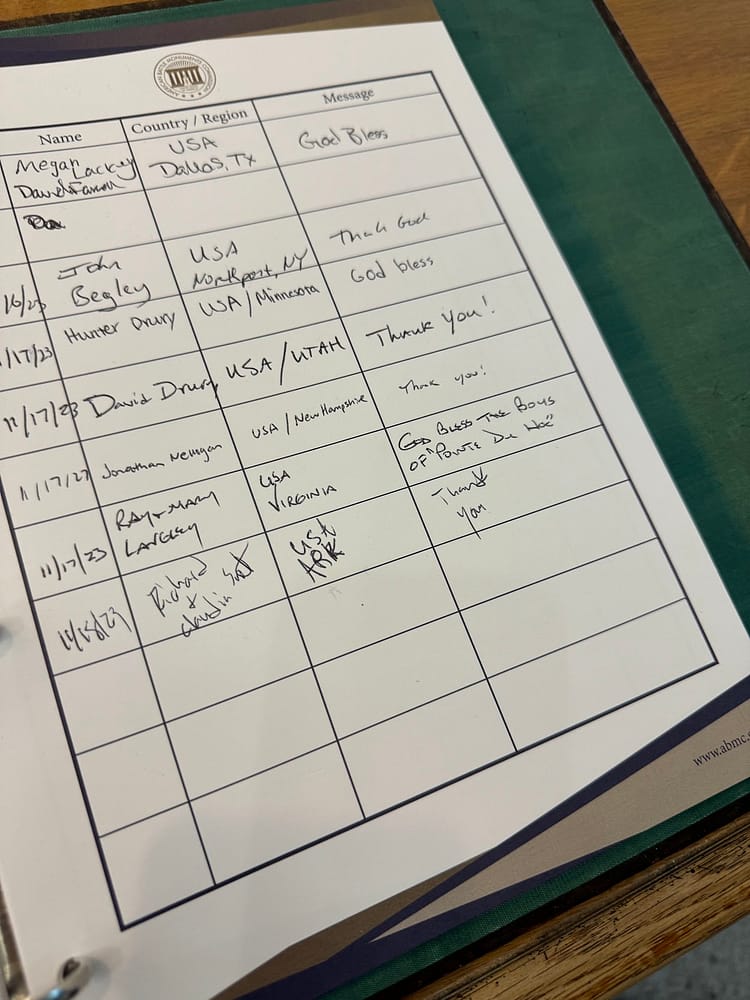 AMERICAN BATTLE MONUMENTS COMMISSION
Name Country / Region Message
Megan Lackey USA God Bless
David Dallas, TX
John USA Thank God
Begley Northport, NY
16/23
Hunter Drury WA/Minnesota God bless
1/17/23
11/17/23 David Drury USA/UTAH Thank You!
11/17/23 Jonathan USA/New Hampshire Thank you!
11/17/23 RAY + MARY USA God Bless The Boys
LANGLEY VIRGINIA OF "Pointe Du Hoc"
11/18/23 Richard USA Thank
& ARK you
www.abmc.